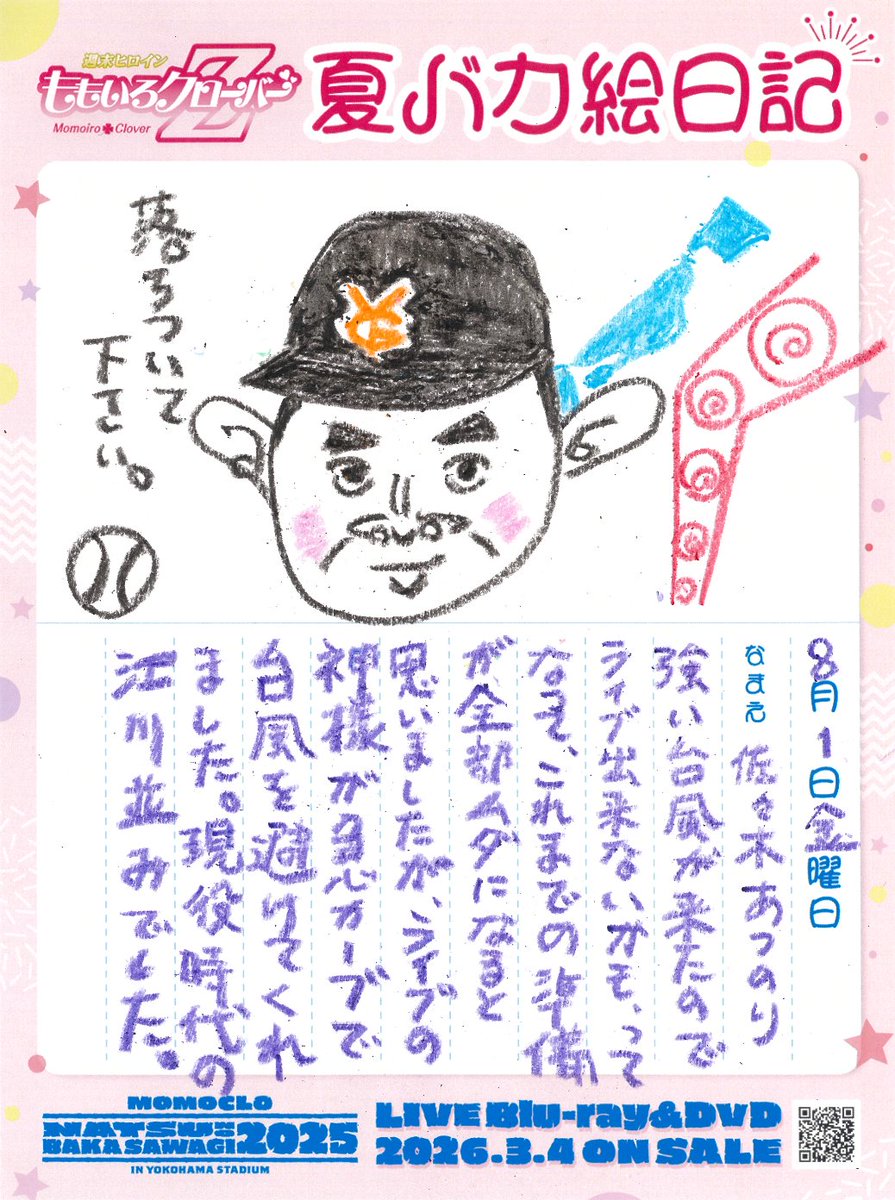 週末ヒロイン
ももいろクローバーZ
Momoiro Clover
夏バカ絵日記
落ちついて
下さい。
YG
8月1日金曜日
なまえ 佐々木あつのり
強い台風が来たので
ライブ出来ないかも、って
なって、これまでの準備
が全部ムダになると
思いましたが、ライブの
神様が急カーブで
台風を避けてくれ
ました。現役時代の
江川並みでした。
MOMOCLO
NATSU
BAKA SAWAGI 2025
IN YOKOHAMA STADIUM
LIVE Blu-ray&DVD
2026.3.4 ON SALE